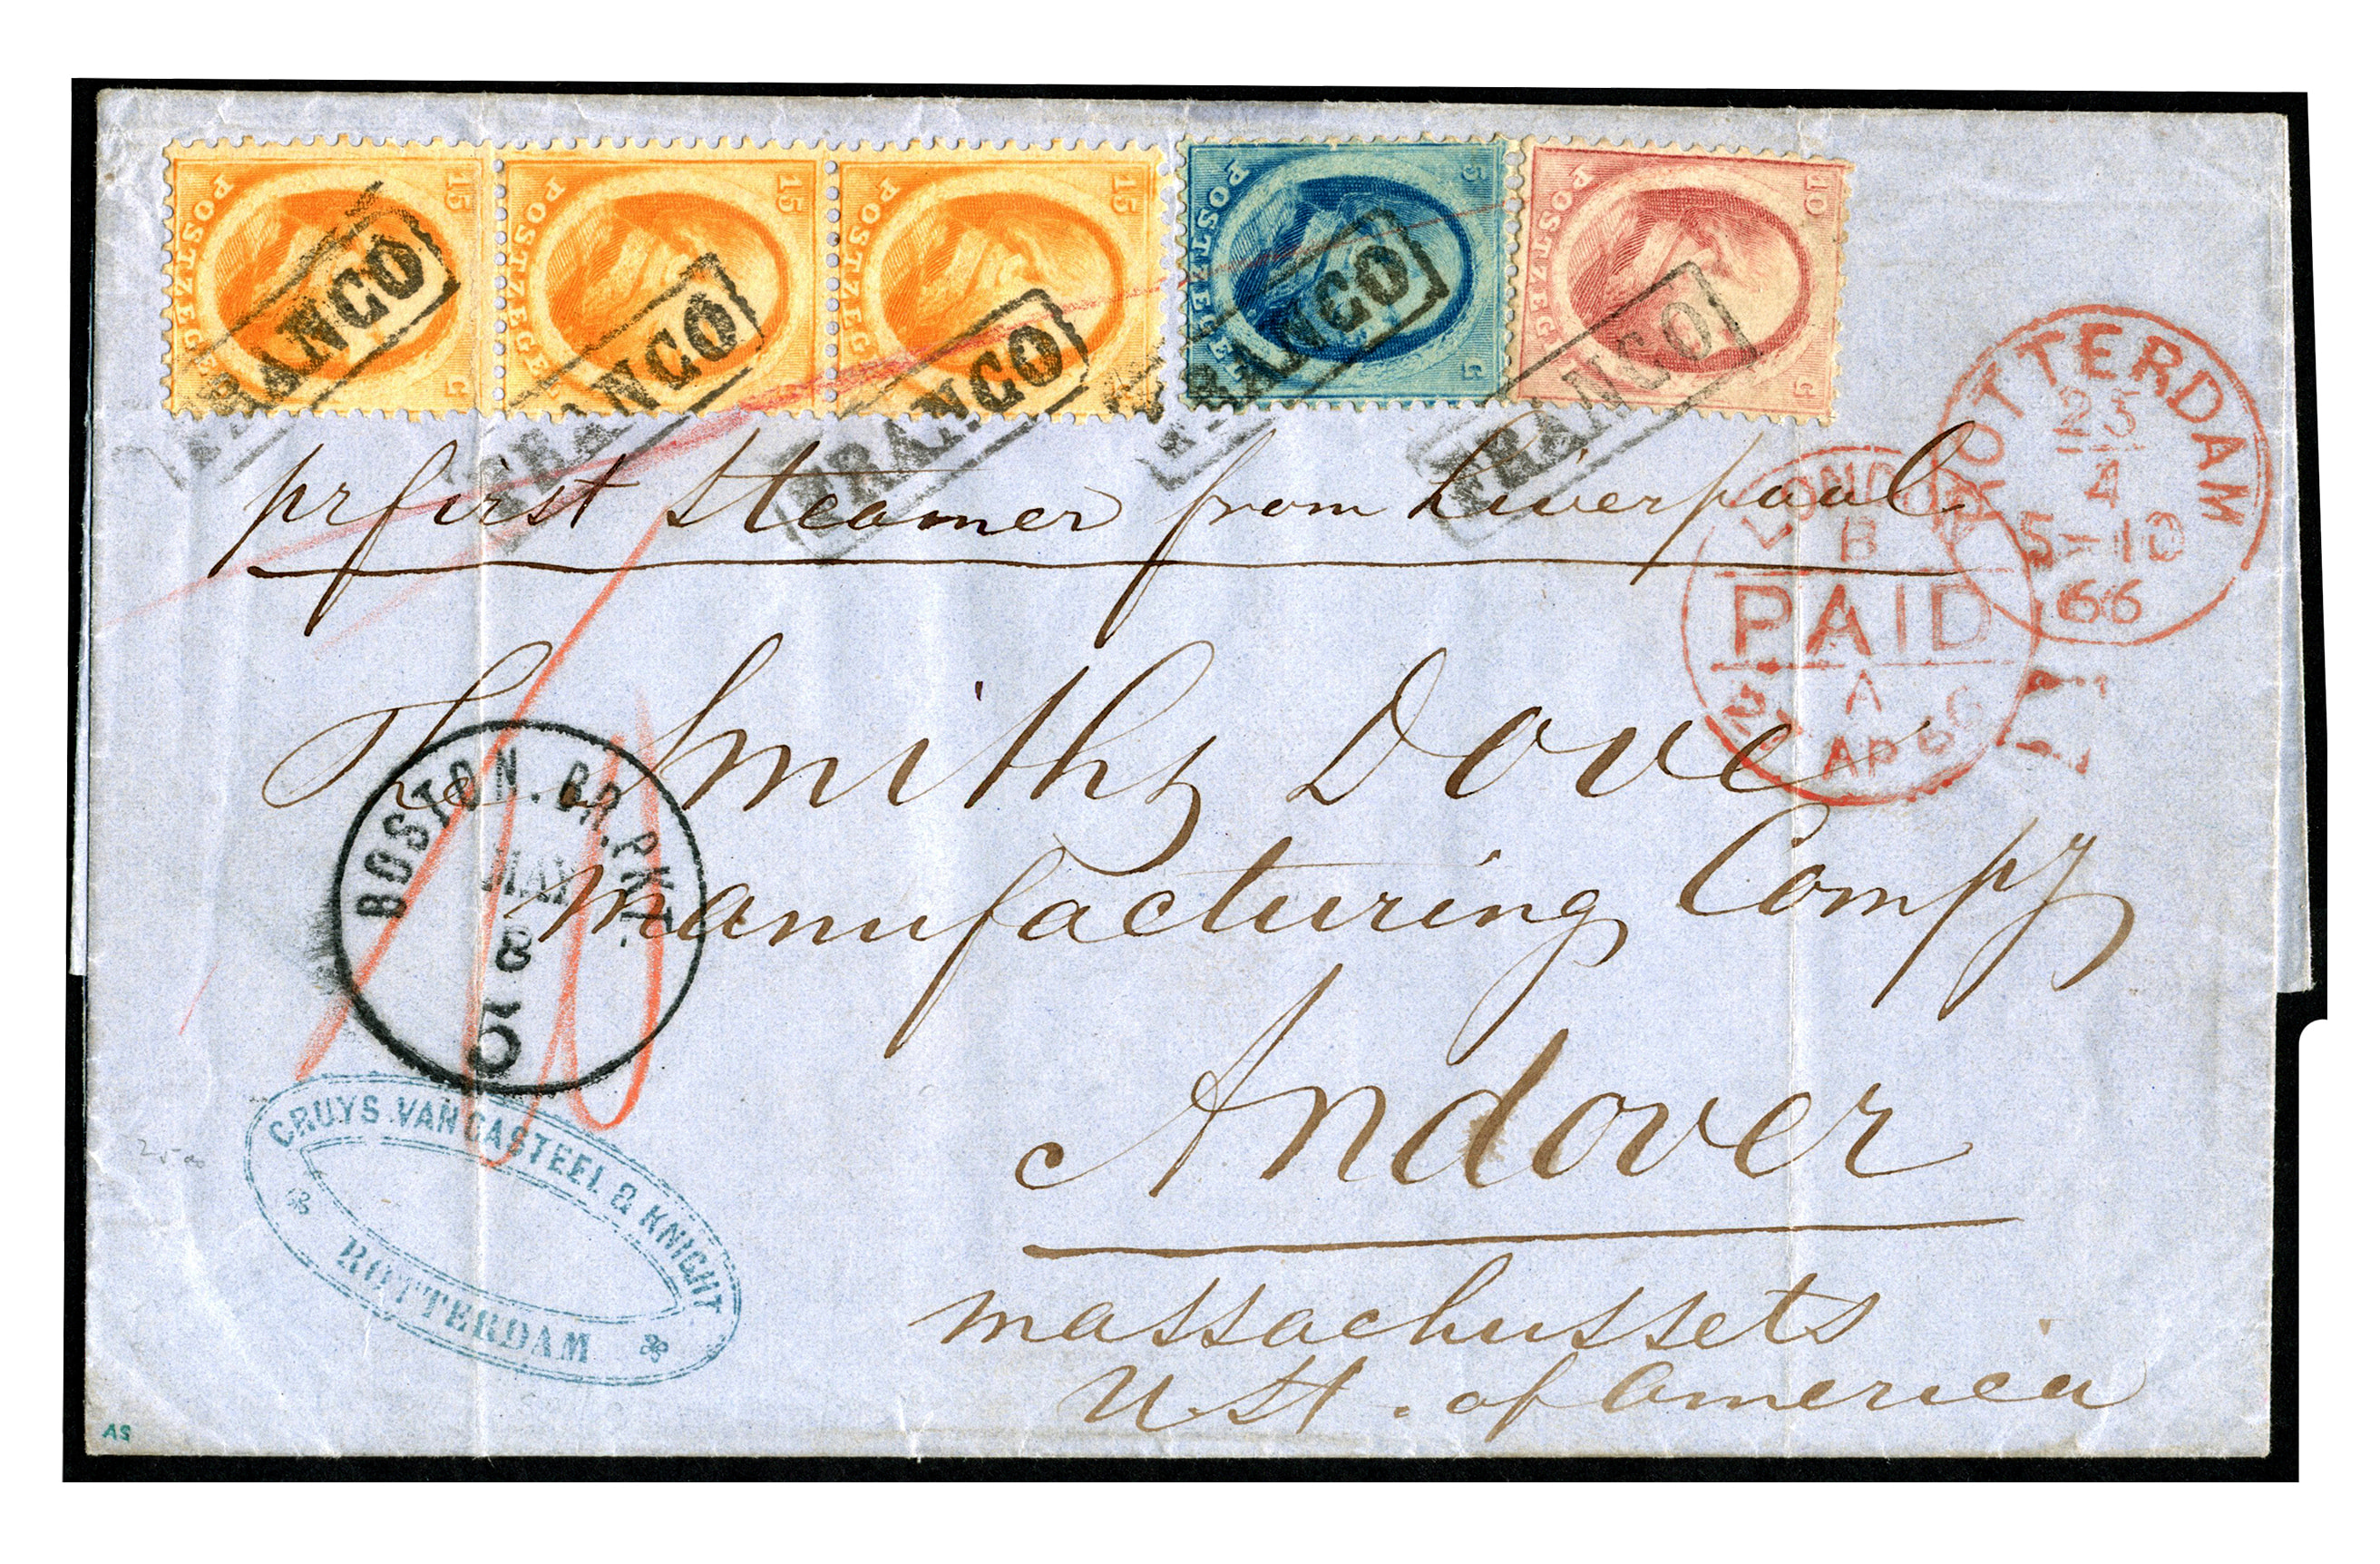 15 POSTZEGEL C
15 POSTZEGEL C
15 POSTZEGEL C
5 POSTZEGEL C
10 POSTZEGEL C
FRANCO
FRANCO
FRANCO
FRANCO
FRANCO
ROTTERDAM
25
4
5-10
66
pr first Steamer from Liverpool
LONDON
B
PAID
A
AP 66
The Smith & Dove
BOSTON. BR. PKT.
MAY
8
Manufacturing Compy
Andover
CRUYS. VAN CASTEEL & KNIGHT
ROTTERDAM
Massachussets
U St. of America
AS